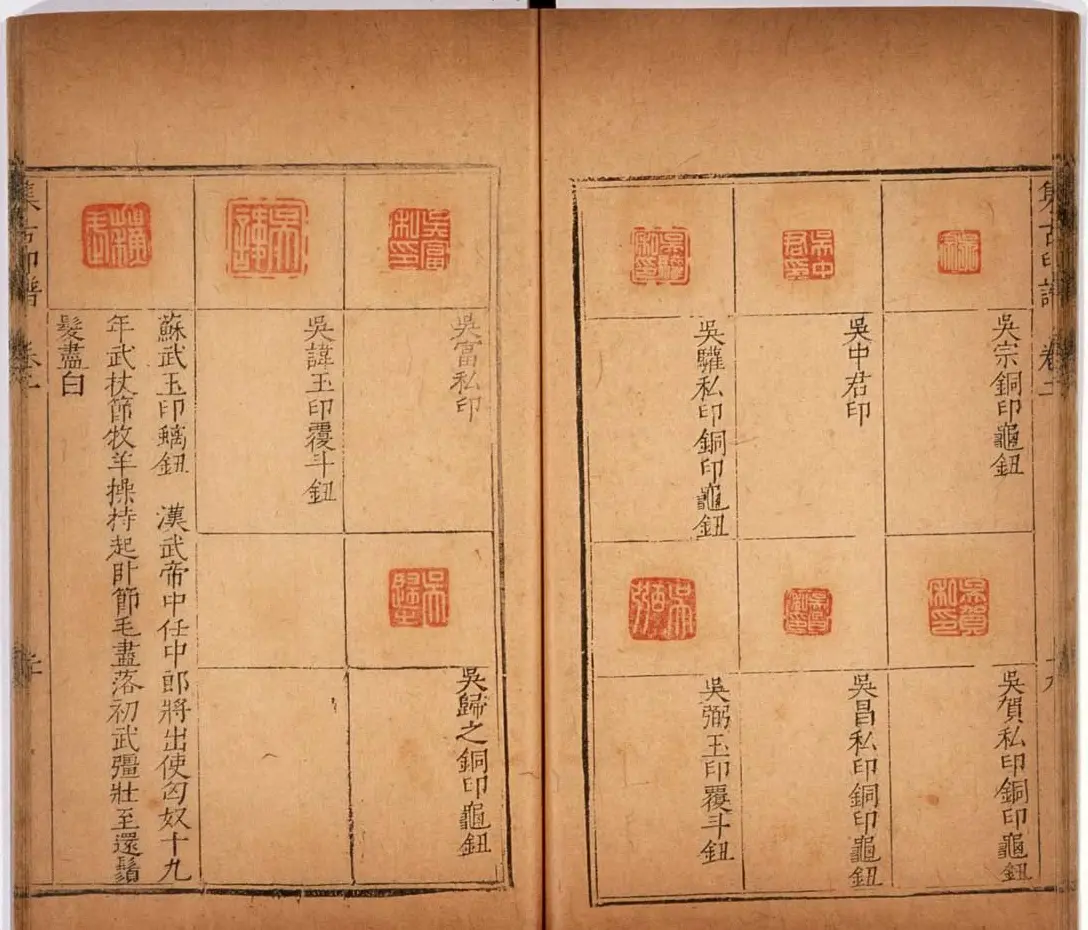 集古印譜
卷二
十九
吳宗銅印龜鈕
吳中君印
吳中君印
吳驩私印銅印龜鈕
吳賀私印
吳賀私印銅印龜鈕
吳昌私印銅印龜鈕
吳弼玉印覆斗鈕
吳富私印
吳富私印
吳諱玉印覆斗鈕
吳歸之銅印龜鈕
蘇武
蘇武玉印螭鈕 漢武帝中任中郎將出使匈奴十九
年武杖節牧羊操持起臥節毛盡落初武彊壯至還鬚
髮盡白
集古印譜